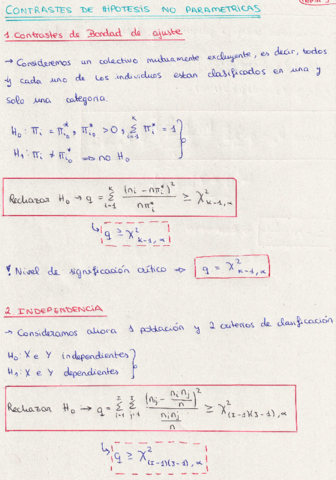 CONTRASTES DE HIPOTESIS NO PARAMETRICAS
1. Contrastes de Bondad de ajuste
→ Consideremos un colectivo mutuamente excluyente, es decir, todos
y cada uno de los individuos estan clasificados en una y
solo una categoria.
H₀: πi = πi₀*, πi₀* > 0, Σ(i=1..k) πi* = 1
H₁: πi ≠ πi₀* ⇒ no H₀
Rechazar H₀ → q = Σ(i=1..k) (ni - nπi*)² / nπi* ≥ χ²k-1,α
↳ q ≥ χ²k-1,α
! Nivel de significación crítico ⇒ q = χ²k-1,α
2. INDEPENDENCIA
→ Consideramos ahora 1 población y 2 criterios de clasificación
H₀: X e Y independientes
H₁: X e Y dependientes
Rechazar H₀ → q = Σ(i=1..I) Σ(j=1..J) (nij - ni nj / n)² / (ni nj / n) ≥ χ²(I-1)(J-1),α
↳ q ≥ χ²(I-1)(J-1),α